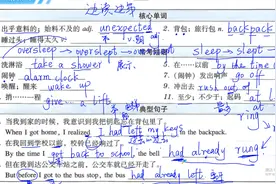 边读边写
核心单词
出乎意料的；始料不及的 adj. unexpected 2. 背包；旅行包 n. backpack
睡过头；睡得太久 v.
oversleep → overslept → overslept sleep → slept
洗淋浴 take a shower 5. 在……以前 by the time
闹钟 alarm clock 7. (闹钟) 发出响声 go off
唤醒；醒来 wake up 9. 冲出去 rush out of
捎……一程 give a lift 11. 至少；不少于 at
典型句子
当我到家的时候，我意识到我把钥匙忘在背包里了
When I got home, I realized I had left my keys in the backpack.
在我回到学校以前，铃已经响了
By the time I got back to school, the bell had already rung
但在我到达公交车站之前，公共汽车就已经开走了
But before I got to the bus stop, the bus had already left